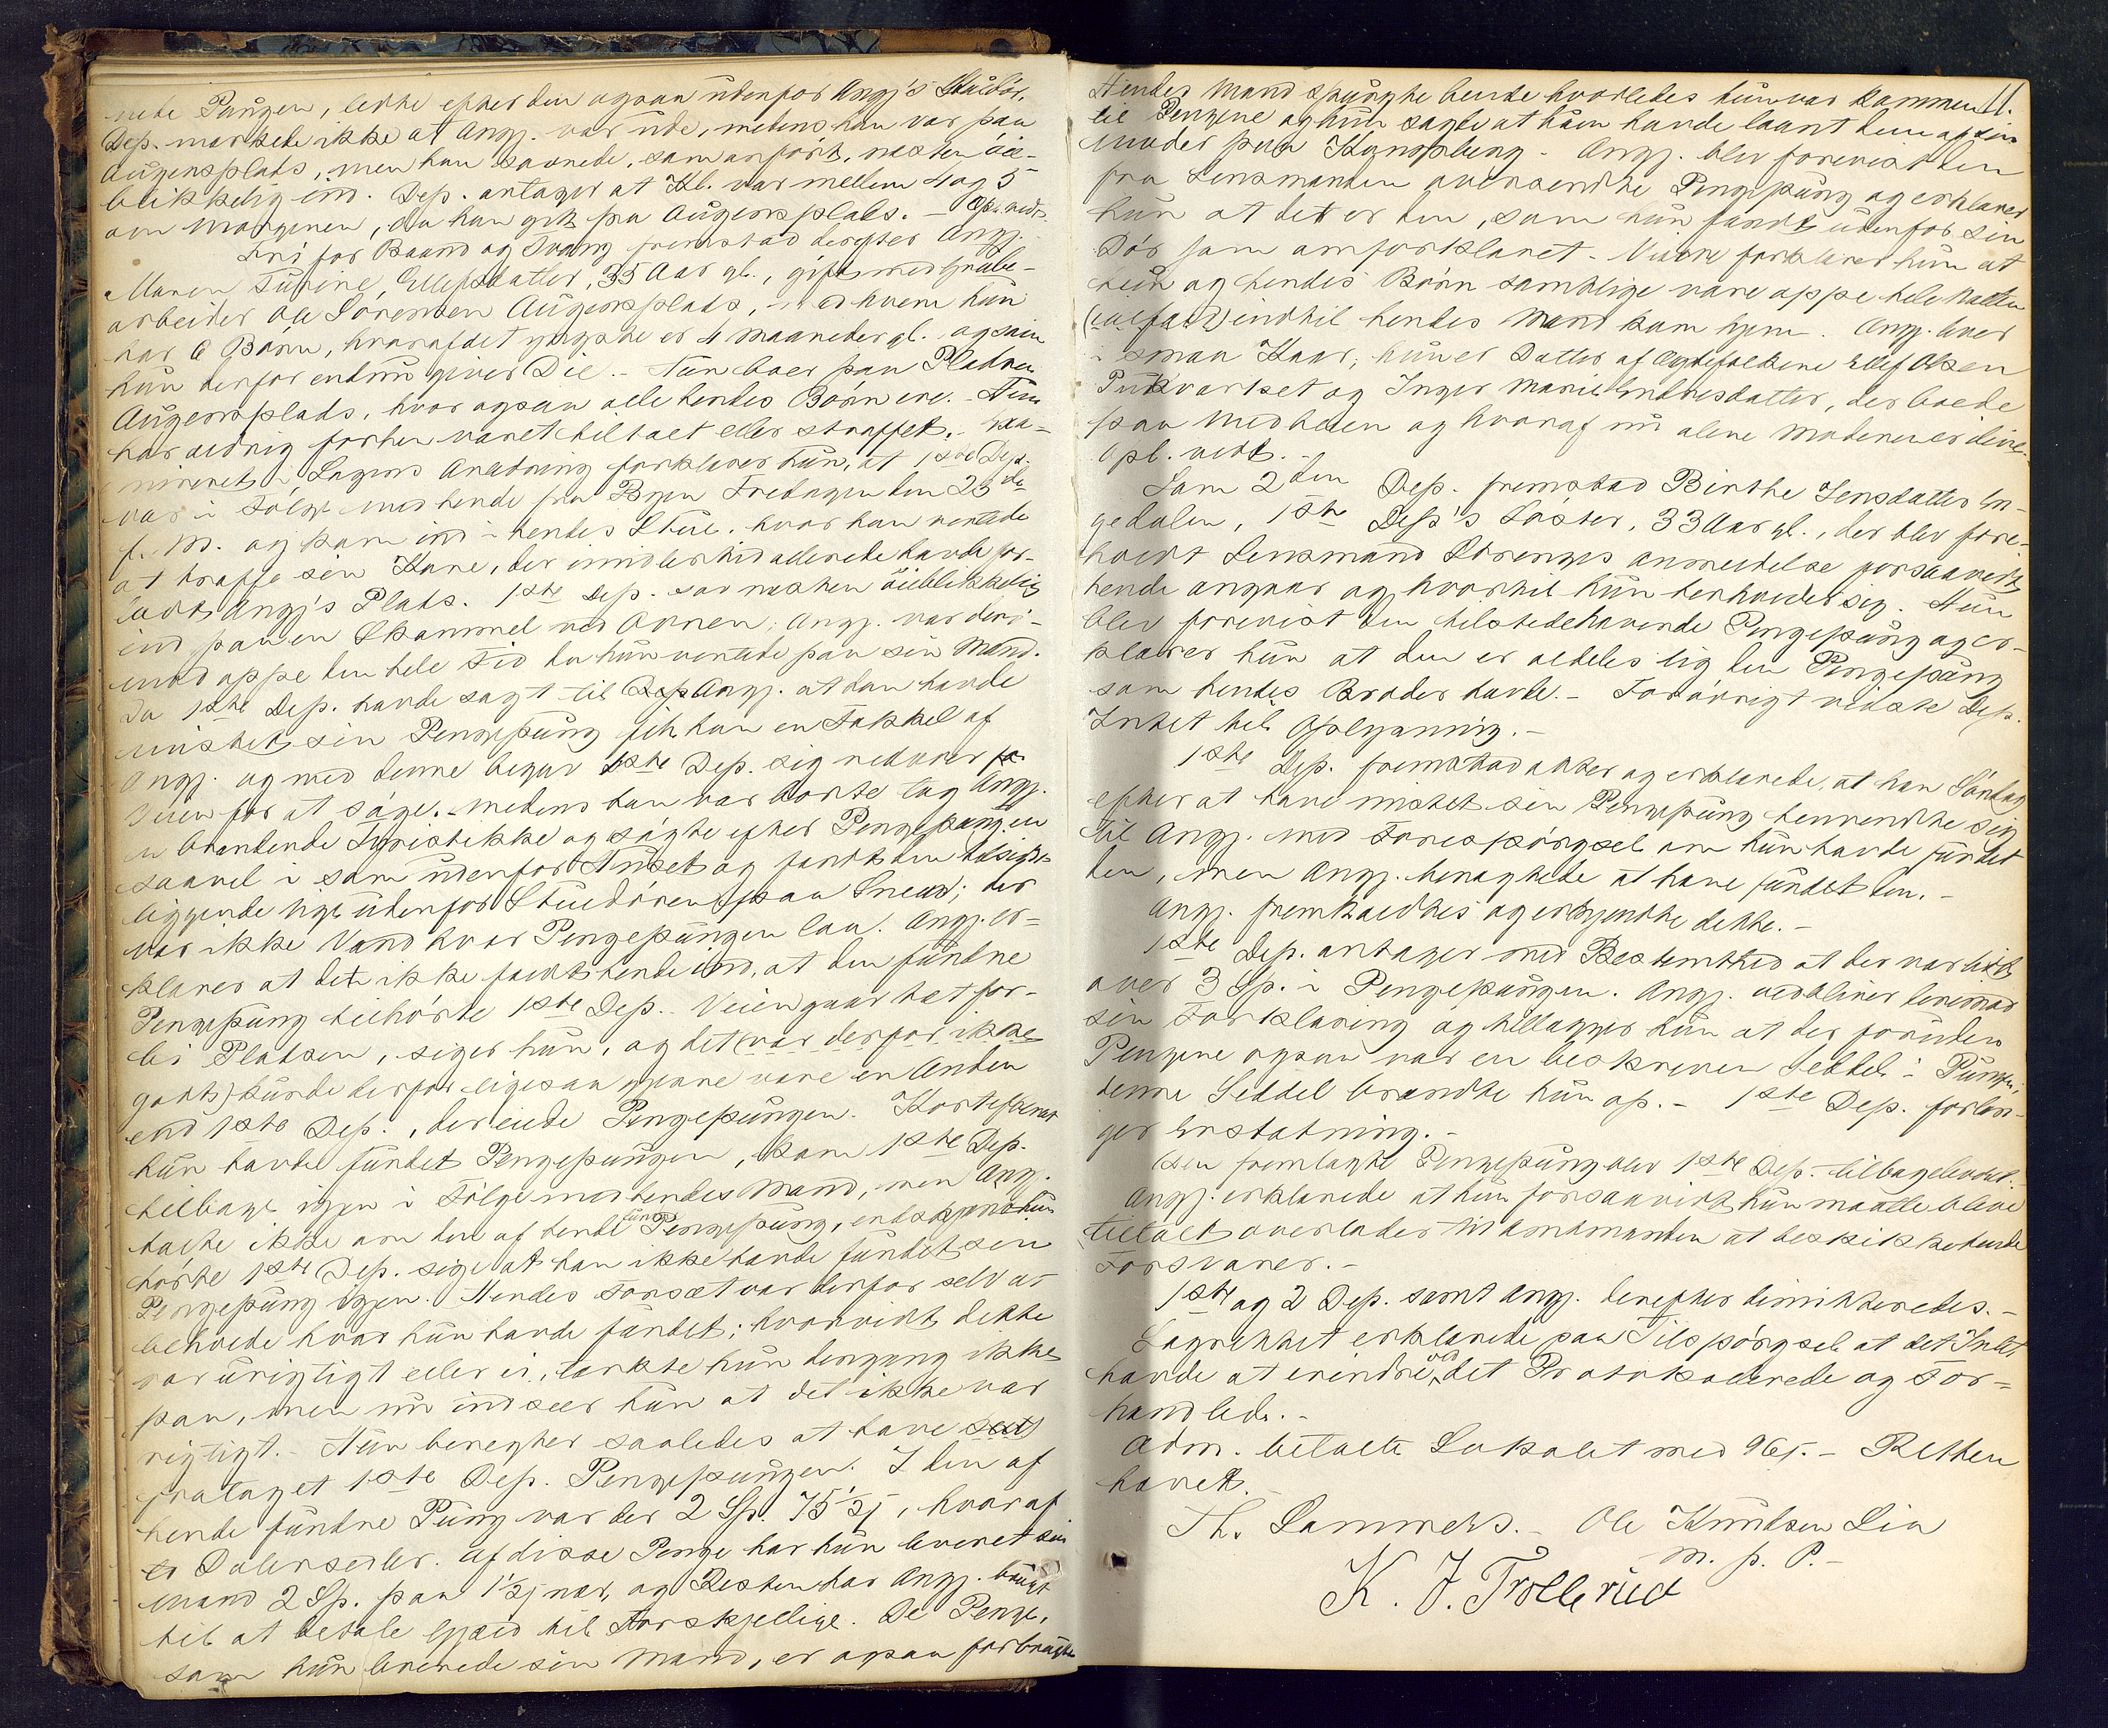 nede Pungen, ledte efter den ogsaa udenfor Angj's Stuedör.
Dep. mærkede ikke at Angj. var ude, medens han var paa
Augensplads, men han savnede, som anført, næsten öie-
blikkelig ind. Dep. antager at Kl. var mellem 4 og 5
om Morgenen, da han gik fra Augensplads. – Opl. vedt.
Fri for Baand og Tvang fremstod derefter Angj.
Maren Turine Ellefsdatter, 35 Aar gl., gift med Grube-
arbeider Ole Sörensen Augensplads, med hvem hun
har 6 Börn, hvoraf det yngste er 4 Maaneder gl. og som
hun derfor endnu giver Die. – Hun boer paa Pladsen
Augensplads, hvor ogsaa alle hendes Börn ere. – Hun
har aldrig forhen været tiltalt eller straffet. – Exa-
mineret i Sagens Anledning forklarer hun, at 1ste Dep.
var i Fölge med hende fra Byen Fredagen den 25de
f. M. og kom ind i hendes Stue, hvor han ventede
at træffe sin Kone, der imidlertid allerede havde for-
ladt Angj's Plads. 1ste Dep. sov næsten öieblikkelig
ind paa en Skammel ved Arnen; Angj. var deri-
mod oppe den hele Tid da hun ventede paa sin Mand.
Da 1ste Dep. havde sagt til Dep Angj. at han havde
mistet sin Pengepung fik han en Fakkel af
Angj. og med denne begav 1ste Dep. sig nedover
Veien for at söge. – Medens han var borte tog Angj.
en brændende Tyristikke og sögte efter Pengepungen
saavel i som udenfor Huset og fandt den tilsidst
liggende lige udenfor Stuedören paa Sneen; der
var ikke Vand hvor Pengepungen laa. Angj. er-
klærer at det ikke faldt hende ind, at den fundne
Pengepung tilhörte 1ste Dep. Veien gaar tæt for-
bi Pladsen, siger hun, og det (var derfor ikke
godt) kunde derfor ligesaa gjerne være en Anden
end 1ste Dep., der eiede Pengepungen. Kort efterat
hun havde fundet Pengepungen, kom 1ste Dep.
tilbage igjen i Fölge med hendes Mand, men Angj.
talte ikke om den af hende fundne Pengepung, endskjönt hun
hörte 1ste Dep. sige at han ikke havde fundet sin
Pengepung igjen. Hendes Forsæt var derfor selv at
beholde hvad hun havde fundet; hvorvidt dette
var urigtigt eller ei, tænkte hun dengang ikke
paa, men nu indseer hun at det ikke var
rigtigt. – Hun benegter saaledes at have
frataget 1ste Dep. Pengepungen. I den af
hende fundne Pung var der 2 Sp. 75½ ſ, hvoraf
to Dalersedler. Af disse Penge har hun leveret sin
Mand 2 Sp. paa 1½ ſ nær, og Resten har Angj. brugt
til at betale Gjæld til Forskjellige. De Penge,
som hun leverede sin Mand, er ogsaa forbrugte
11.
Hendes Mand spurgte hende hvorledes hun var kommen
til Pengene og hun sagde at hun havde laant dem af sin
Moder paa Kongsberg. – Angj. blev forevist den
fra Lensmanden oversendte Pengepung og erklærer
hun at det er den, som hun fandt udenfor sin
Dör som omforklaret. – Videre forklarer hun at
hun og hendes Börn samtlige vare oppe hele Natten
(ialfald) indtil hendes Mand kom hjem. Angj. lever
i smaa Kaar; hun er Datter af Ægtefolkene Ellef Olsen
Pukværket og Inger Marie Endresdatter, der boede
paa Medheien og hvoraf nu alene Moderen er ilive.
Opl. vedt. –
Som 2den Dep. fremstod Birthe Jensdatter En-
gedalen, 1ste Dep's Söster, 33 Aar gl., der blev fore-
holdt Lensmand Storengs anmeldelse forsaavidt
hende angaar og hvortil hun henholder sig. Hun
blev forevist den tilstedehavende Pengepung og er-
klærer hun at den er aldeles lig den Pengepung
som hendes Broder havde. – Forövrigt vidste Dep.
Intet til Oplysning. –
1ste Dep. fremstod atter og erklærede, at han Söndag
efter at have mistet sin Pengepung henvendte sig
til Angj. med Forespörgsel om hun havde fundet
den, men Angj. benegtede at have fundet den. –
Angj. fremkaldtes og erkjendte dette. –
1ste Dep. antager med Bestemthed at der var lidt
over 3 Sp. i Pengepungen. Angj. vedbliver derimod
sin Forklaring og tillægger hun at der foruden
Pengene ogsaa var en beskreven Seddel i Pungen;
denne Seddel brændte hun op. – 1ste Dep. forlan-
ger Erstatning. –
Den fremlagte Pengepung blev 1ste Dep. tilbageleveret. –
Angj. erklærede at hun forsaavidt hun maatte blive
tiltalt overlader til Amtmanden at beskikke hende
Forsvarer. –
1ste og 2 Dep. samt Angj. derefter dimitteredes. –
Lagrettet erklærede paa Tilspörgsel at det Intet
havde at erindre ved det Protokollerede og For-
handlede. –
Adm. betalte Lokalet med 96 ſ. – Retten
hævet.
Th. Lammers. – Ole Knudsen Lia
m. p. P. –
K. J. Trollerud